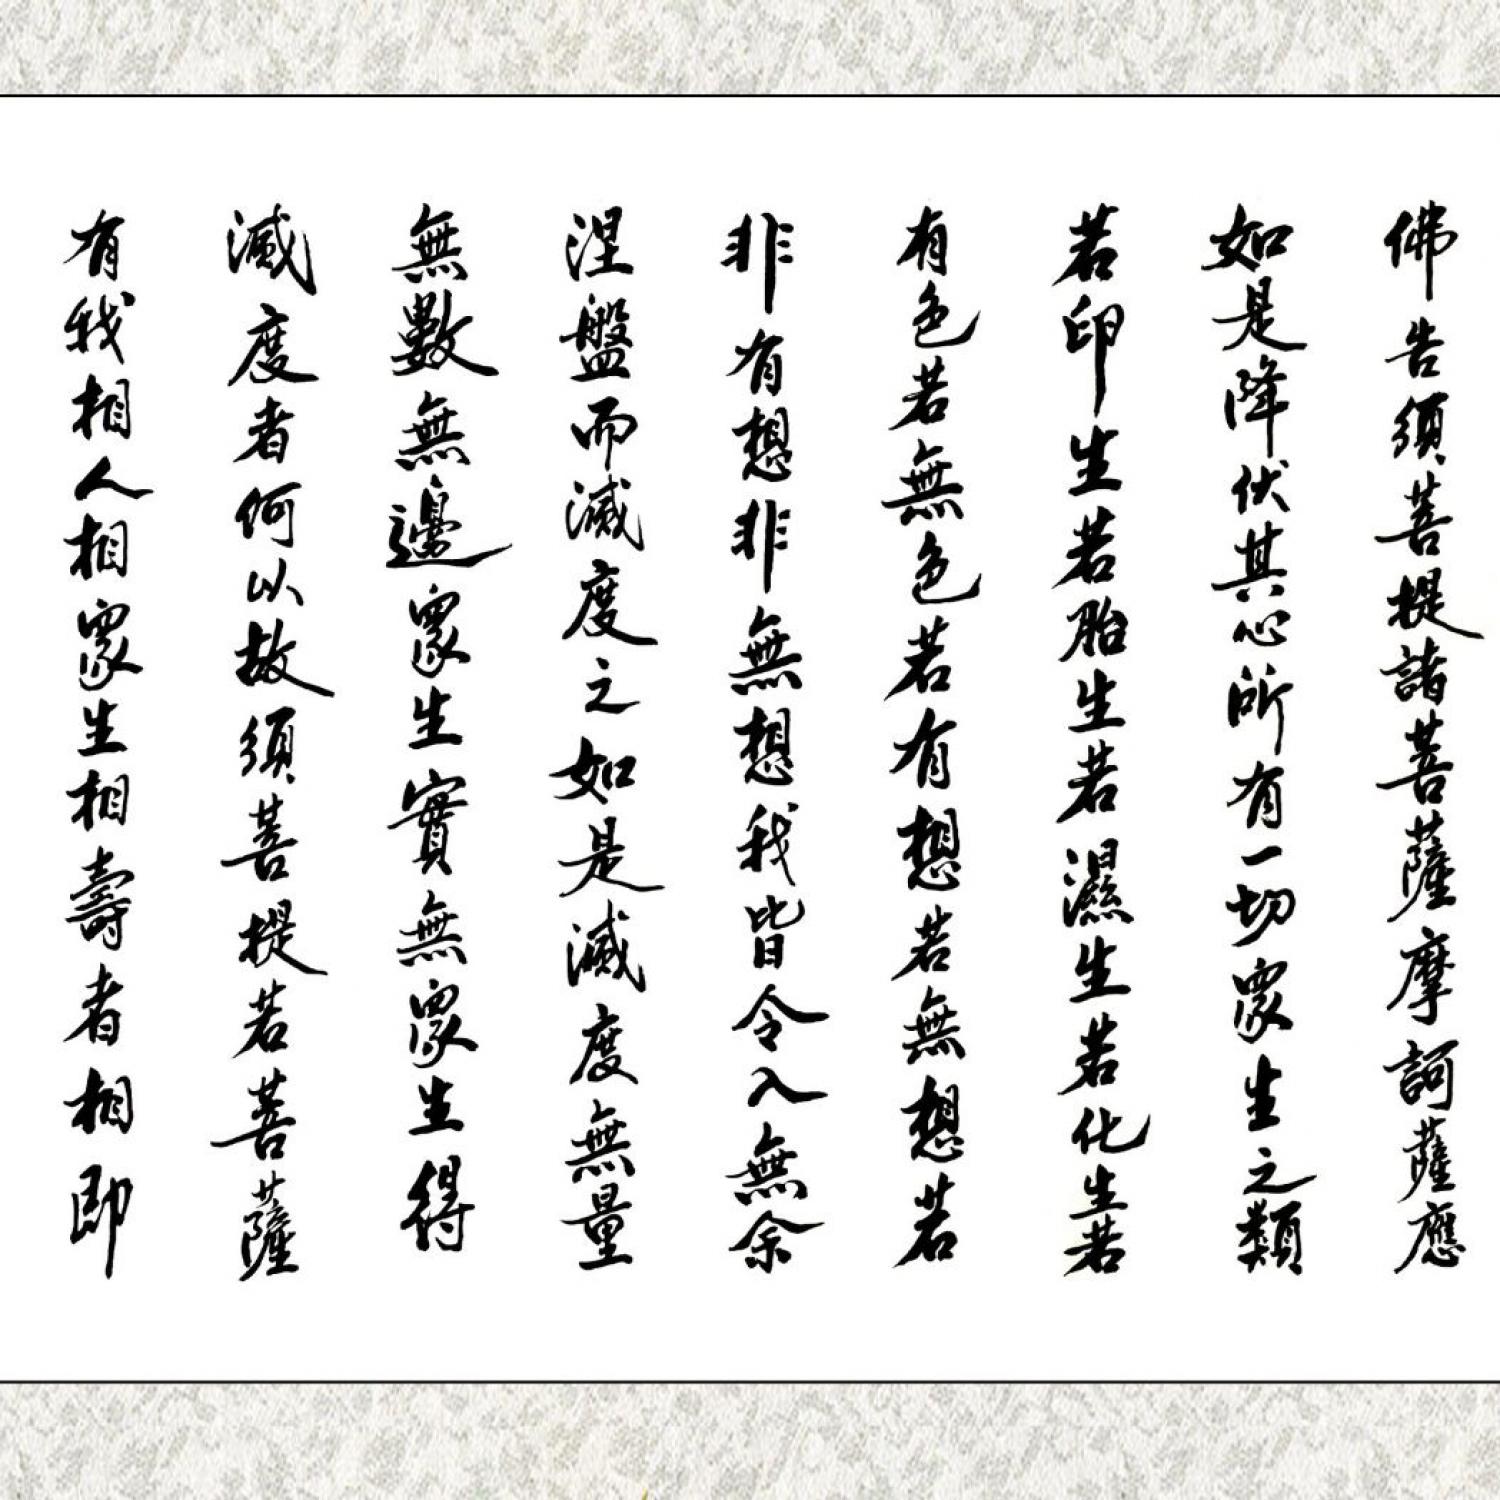 佛告須菩提諸菩薩摩訶薩應
如是降伏其心所有一切眾生之類
若卵生若胎生若濕生若化生若
有色若無色若有想若無想若
非有想非非無想我皆令入無余
涅盤而滅度之如是滅度無量
無數無邊眾生實無眾生得
滅度者何以故須菩提若菩薩
有我相人相眾生相壽者相即